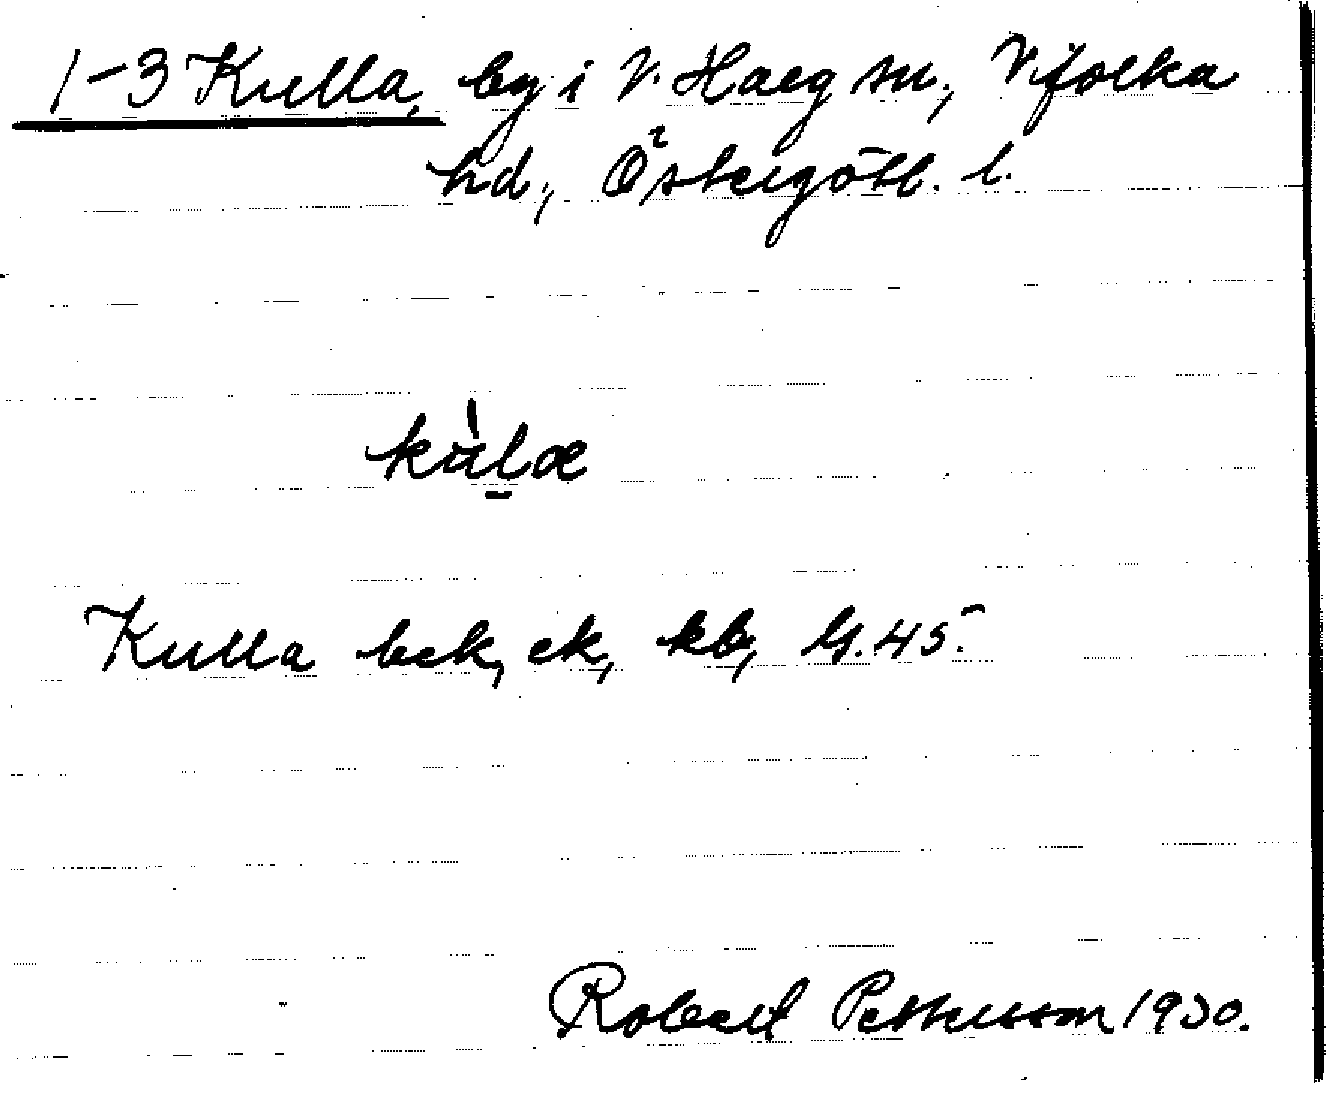 1-3 Kulla, by i V. Harg sn, Vifolka
hd, Östergötl. l.
kùl̲a
Kulla bek, ek, kb, G. 45.
Robert Pettersson 1930.